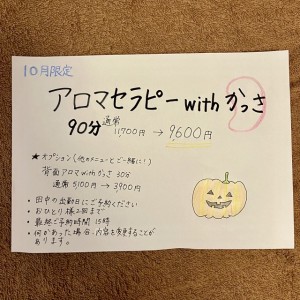 10月限定
アロマセラピー with かっさ
90分 通常 11,700円 → 9600円
★オプション(他のメニューとご一緒に!)
背面アロマ with かっさ 30分
通常 5,100円 → 3900円
• 田中の出勤日にご予約ください
• おひとり様2回まで
• 最終ご予約時間 15時
• 何かあった場合、内容を変更することが
あります。